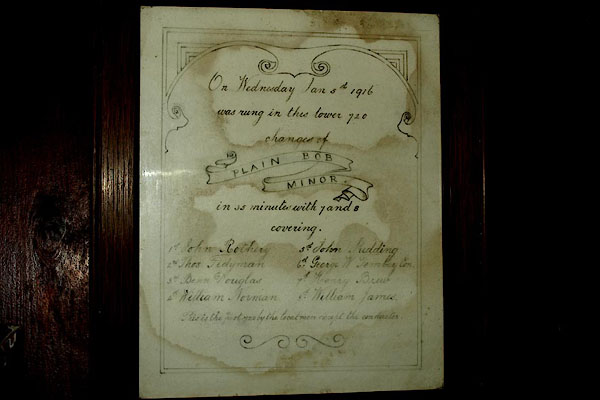 On Wednesday Jan 5th 1916
was rung in this tower 720
changes of
PLAIN BOB
MINOR
in 35 minutes with 7 and 8
covering.
1st John Rothery 5th John Nudding
2nd Thos Tidyman 6th George W
3rd Benn Douglas 7th Henry Brew
4th William Norman 8th William James
This is the first 720 by the local men